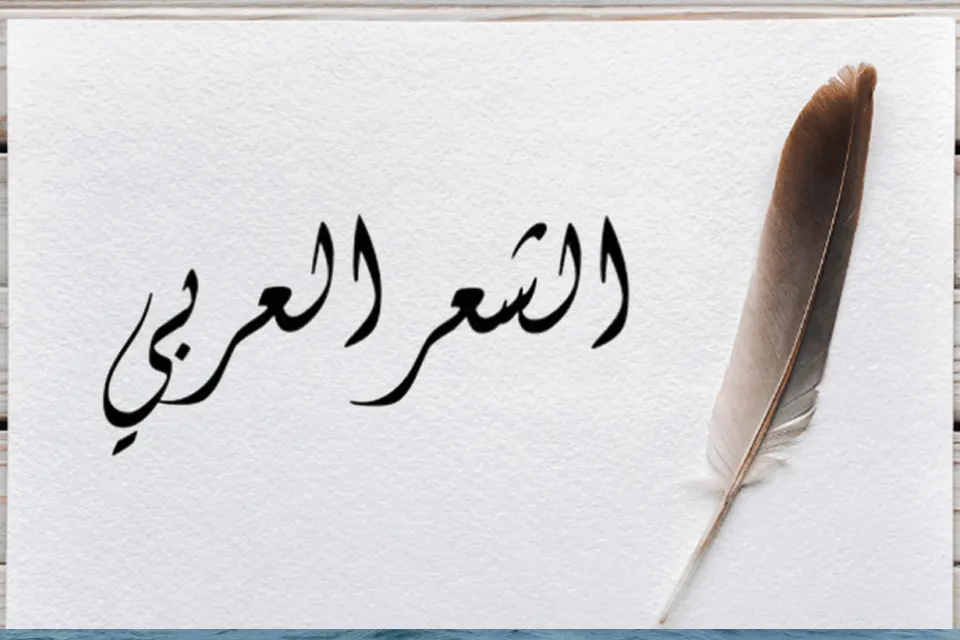 الشعر العربي